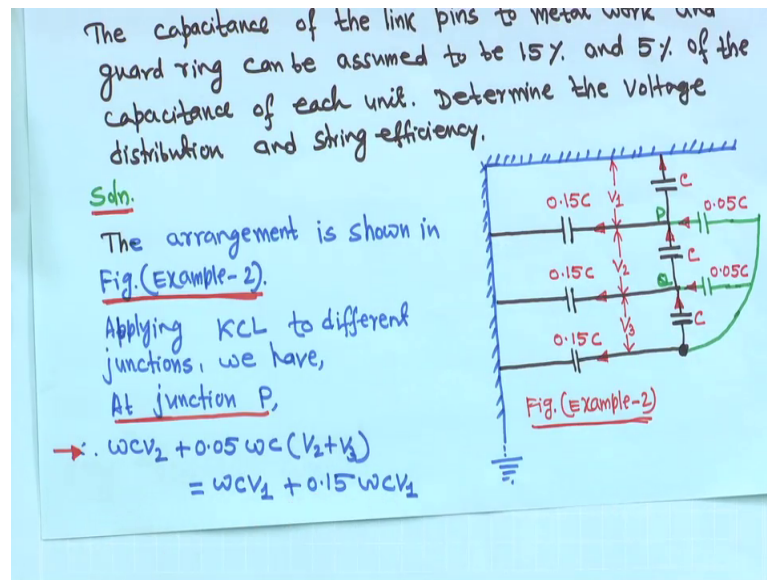 The capacitance of the link pins to metal work and
guard ring can be assumed to be 15% and 5% of the
capacitance of each unit. Determine the voltage
distribution and string efficiency.
Soln.
The arrangement is shown in
Fig.(Example-2).
Applying KCL to different
junctions, we have,
At junction P,
∴ ωCV₂ + 0.05 ωC (V₂+V₃)
= ωCV₁ + 0.15 ωCV₁
0.15C V₁ C
P 0.05C
0.15C V₂ C
Q 0.05C
0.15C V₃ C
Fig.(Example-2)